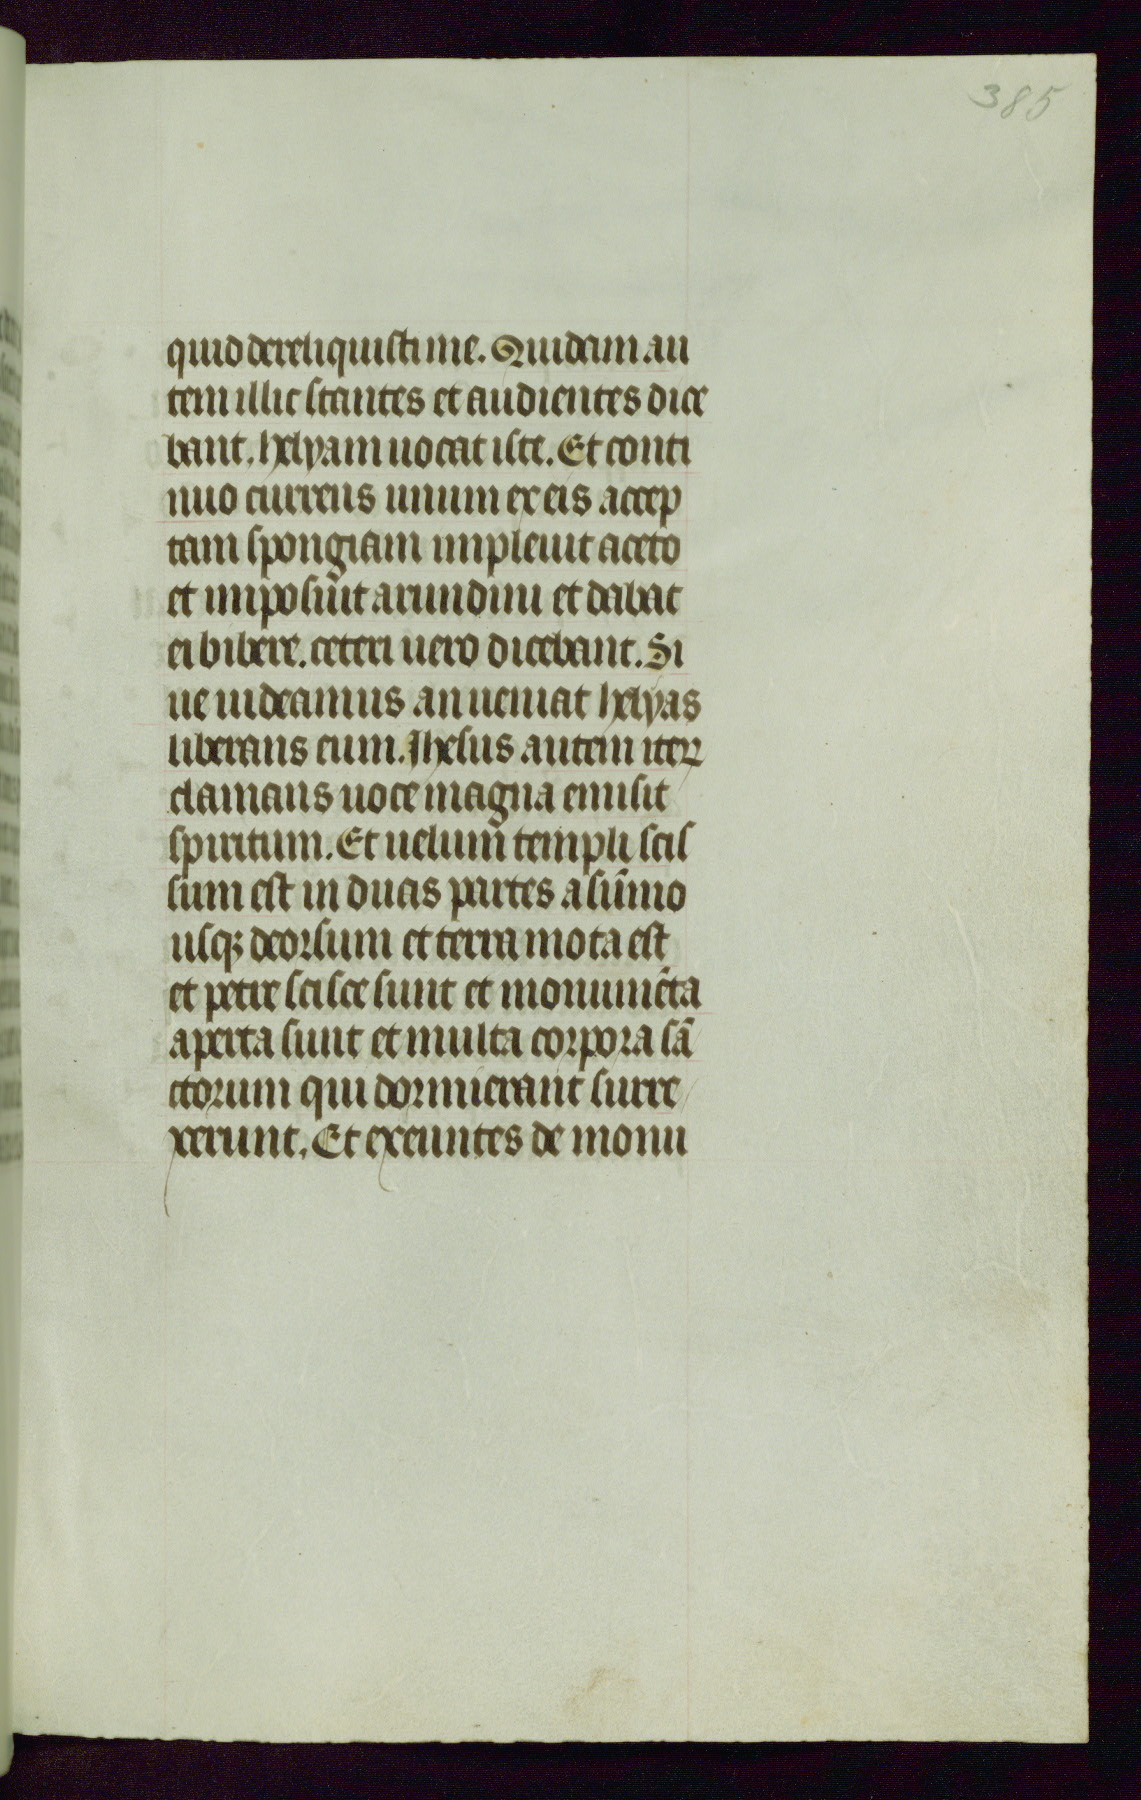 385
quid dereliquisti me. Quidam au
tem illic stantes et audientes dice
bant. helyam uocat iste. Et conti
nuo currens unum ex eis accep
tam spongiam impleuit aceto
et imposuit arundini et dabat
ei bibere. ceteri uero dicebant. Si
ne uideamus an ueniat helyas
liberans eum. Ihesus autem iterꝝ
clamans uoce magna emisit
spiritum. Et uelum templi scis
sum est in duas partes a sūmo
usqꝫ deorsum et terra mota est
et petre scisce sunt et monumēta
aperta sunt et multa corpora sā
ctorum qui dormierant surre
xerunt. Et exeuntes de monu